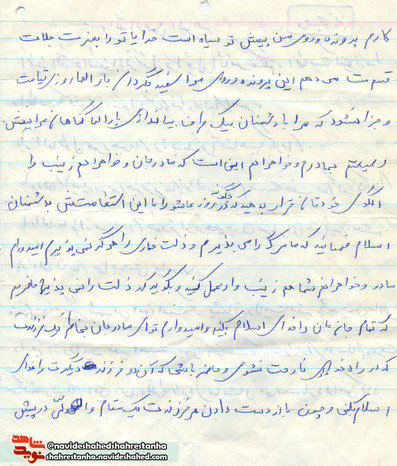 کارم پرونده و روی من پیش تو سیاه است خدایا تو را بعزت جلالت
قسمت می دهم این پرونده و روی مرا سفید بگردان بار الها روز قیامت
و جزا نشود که مرا با دشمنان یک طرف بیاندازی بار الها گناهان مرا ببخش.
وصیتم به مادرم و خواهرانم این است که مادر جان و خواهرانم زینب را
الگوی خودتان قرار بدهید که چگونه در روز عاشورا با این استقامتش به دشمنان
اسلام فهمانید که ما مرگ را می پذیریم و ذلت و خاری را هرگز نمی پذیریم امیدوارم
مادر و خواهرانم شما هم زینب وار عمل کنید و بگوئید که ذلت را نمی پذیریم حاضریم
که تمام جانمان را فدای اسلام بکنیم و امیدوارم تو ای مادر جان بخاطر فرزندت
که در راه خدا ناراحت نشوی و حاضر باشی که آن دو فرزند دیگرت را فدای
اسلام بکنی و چون با از دست دادن هر فرزندت یک مقام والا در پیش
شاهد
نوید
@navideshahedshahrestanha
shahrestanha.navideshahed.com